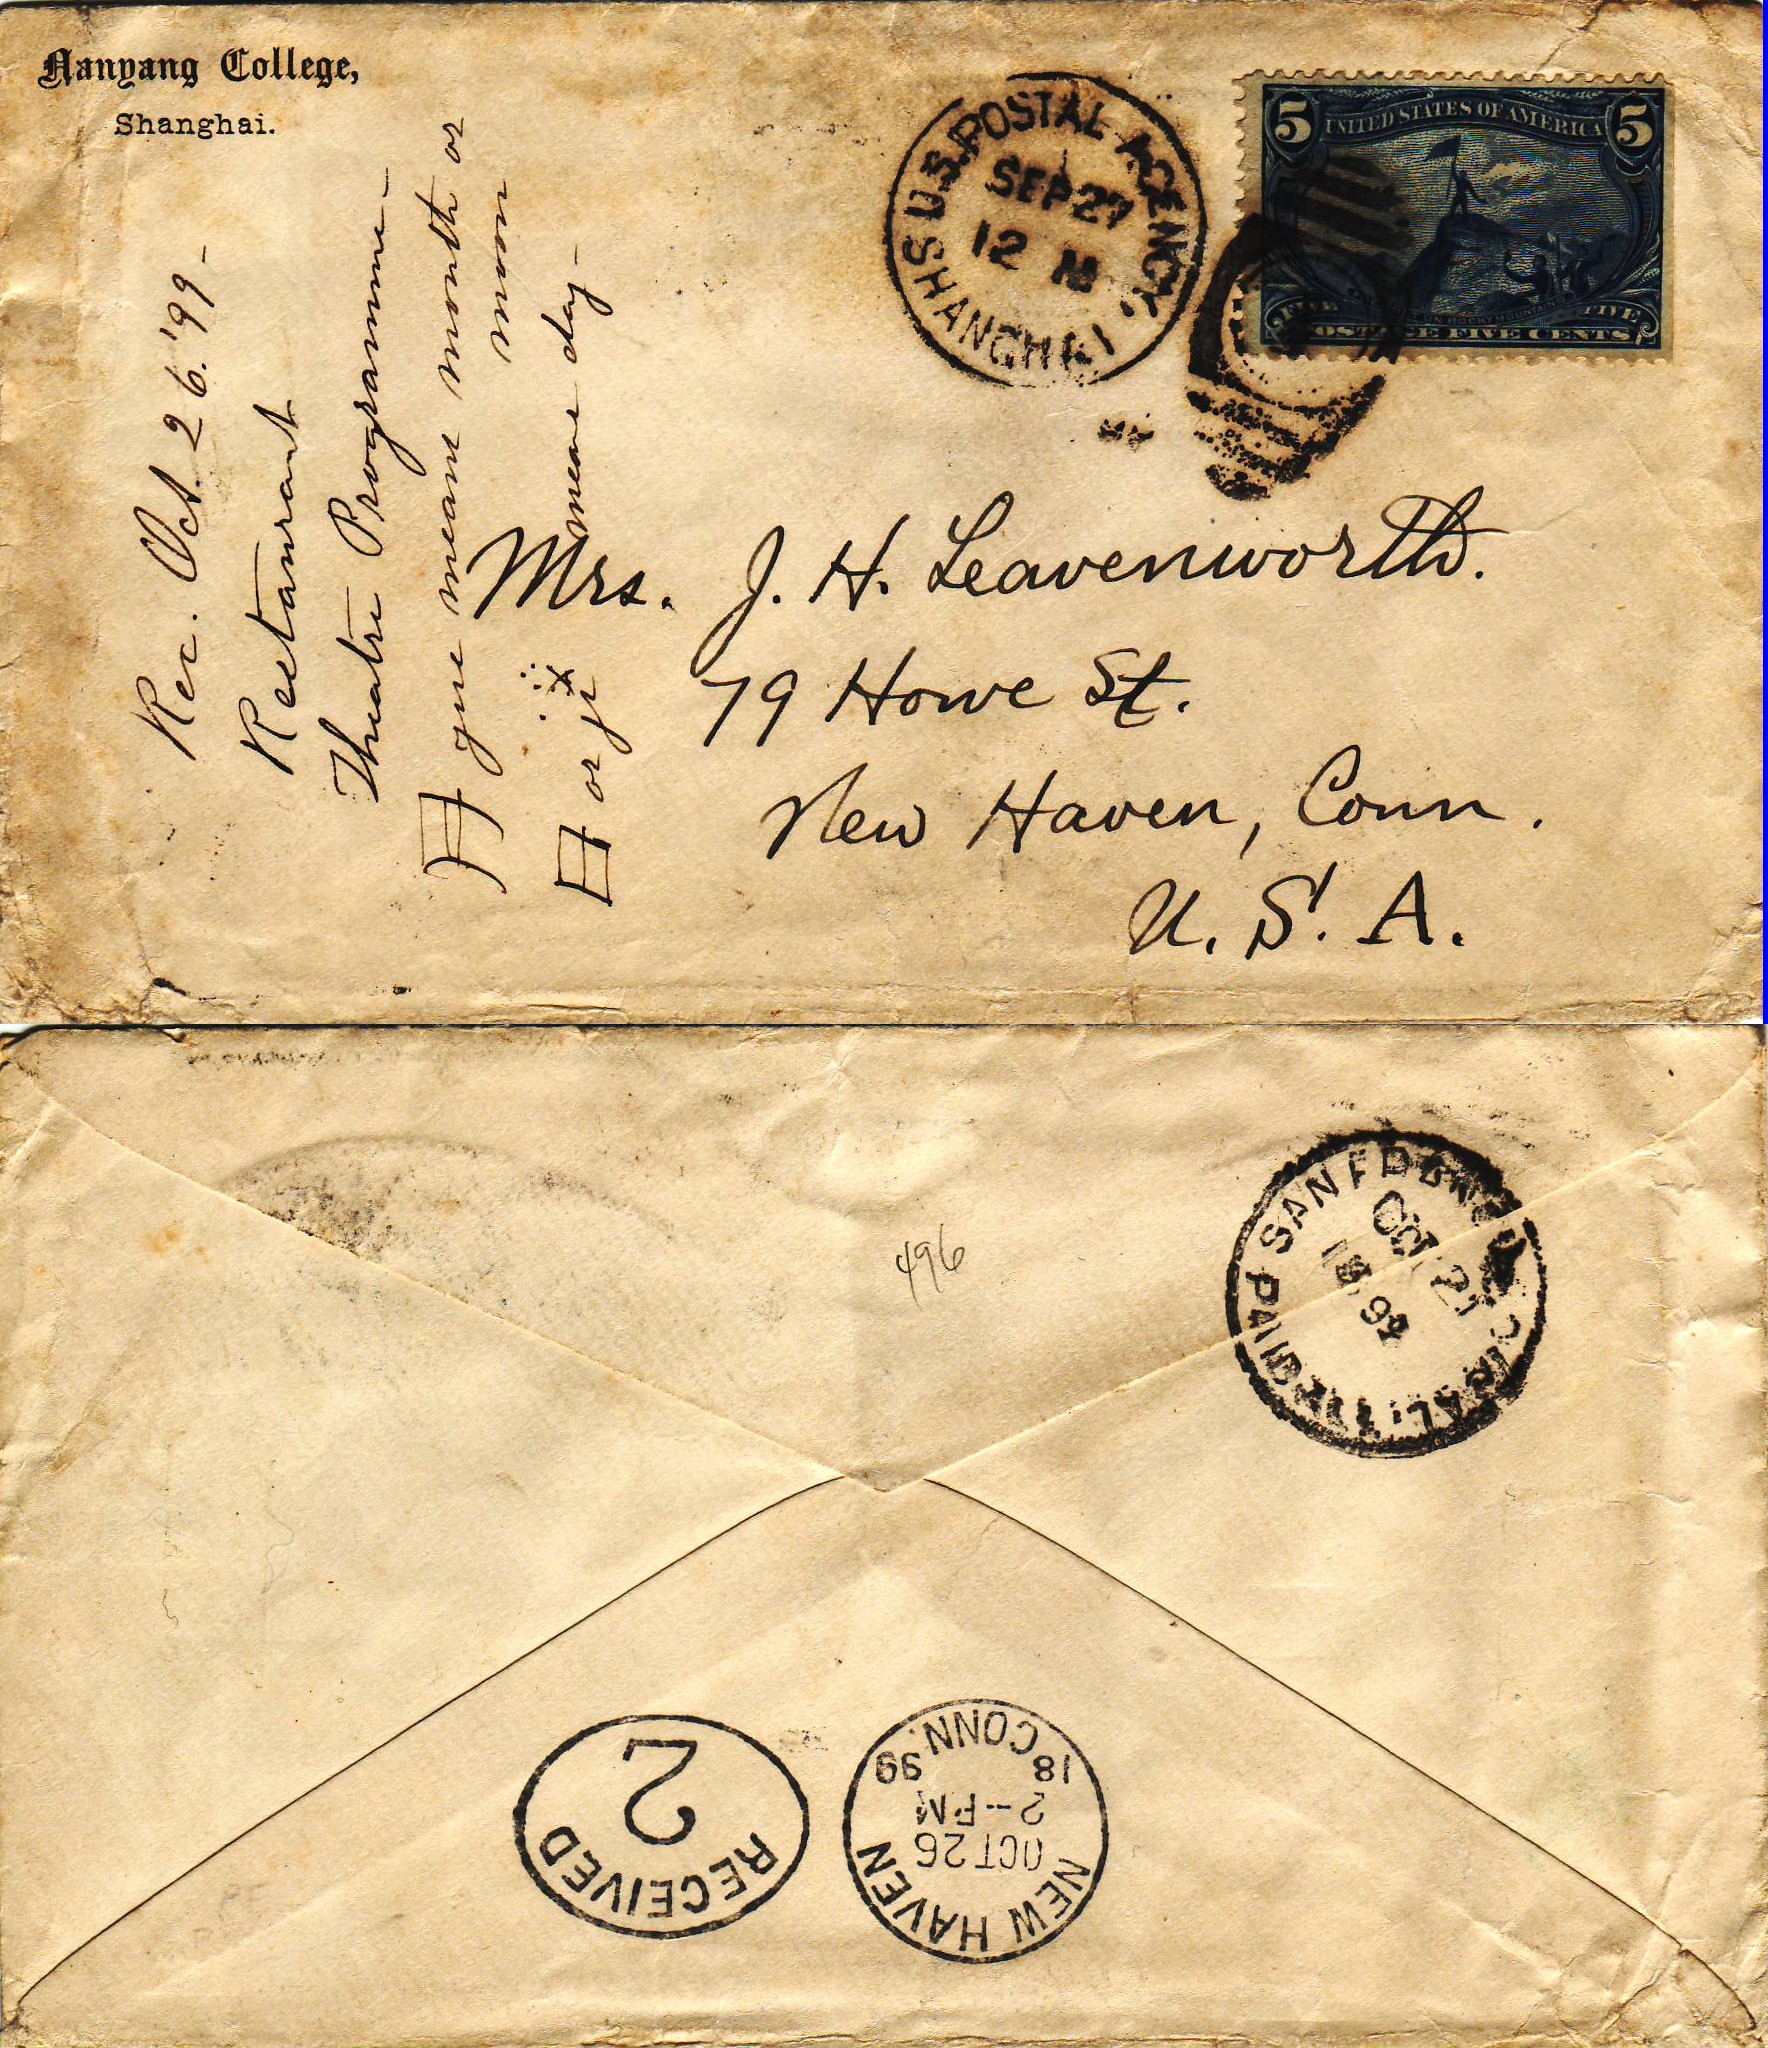 Nanyang College,
Shanghai.
U.S. POSTAL AGENCY.
SEP 27
12 M
SHANGHAI
5 UNITED STATES OF AMERICA 5
FIVE FIVE
POSTAGE FIVE CENTS
Rec. Oct. 26. '99 -
Restaurant
Theatre Programme -
月 yue means month or
moon
日 or ji means day -
Mrs. J. H. Leavenworth.
79 Howe St.
New Haven, Conn.
U. S. A.
SAN FRANCISCO, CAL.
OCT 21
99
PAID
496
RECEIVED
2
NEW HAVEN
OCT 26
2-PM
18 99
CONN.